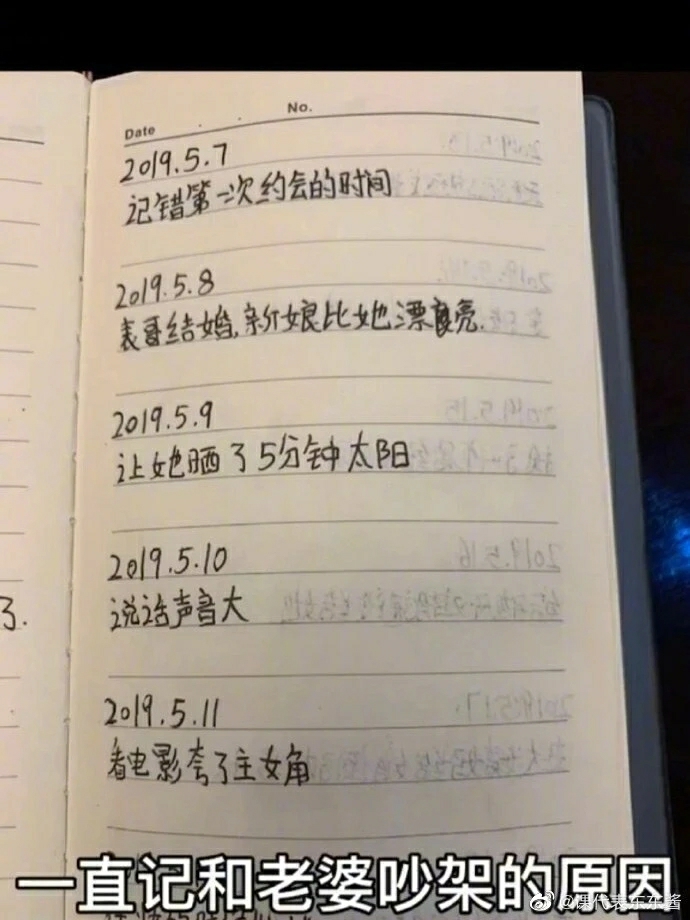 Date . . No.
2019.5.7
记错第一次约会的时间
2019.5.8
表哥结婚,新娘比她漂亮.
2019.5.9
让她晒了5分钟太阳
2019.5.10
说话声音大
了.
2019.5.11
看电影夸了主女角
一直记和老婆吵架的原因
@课代表东东酱